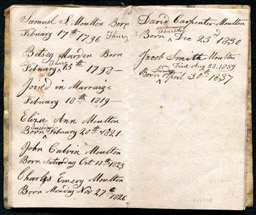 Samuel S. Moulton Born
Febuary 17th 1796
Betsey Marden Born
Febuary 13th 1798 —
Joind in Marriage
Febuary 18th 1819 —
Eliza Ann Moulton
Born Febuary 20th 1821
John Calvin Moulton
Born Saturday Oct 18th 1823
Charles Emery Moulton
Born Monday Nov 27th 1826
David Carpenter Moulton
Thursday
Born Dec 23d 1830
Jacob Smith Moulton
Died Aug 23, 1839
Born April 30th 1837